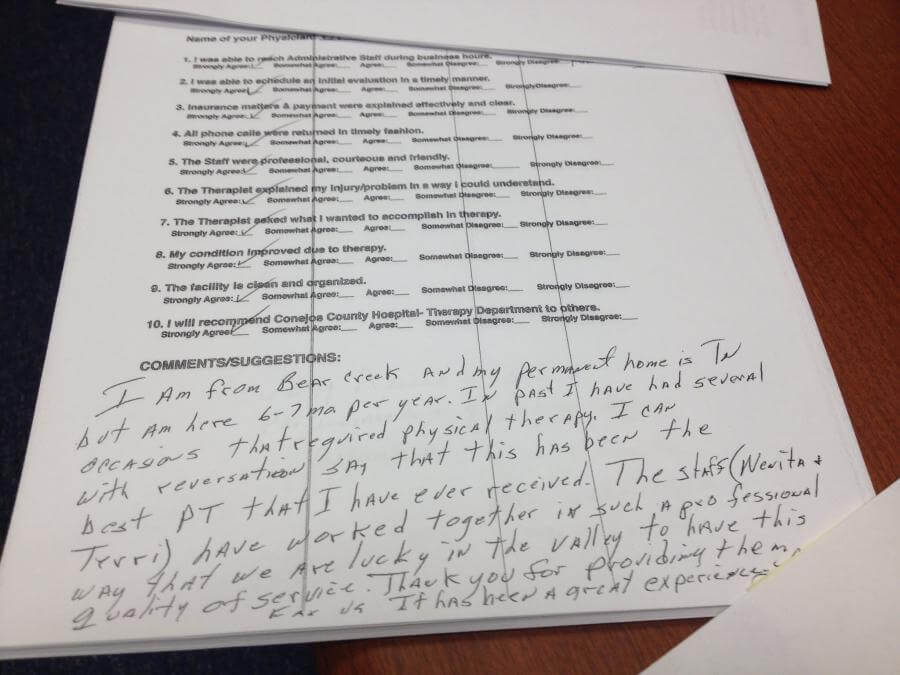 Name of your Physician:
1. I was able to reach Administrative Staff during business hours.
Strongly Agree:✓ Somewhat Agree:__ Agree:__ Somewhat Disagree:__ Strongly Disagree:__
2. I was able to schedule an initial evaluation in a timely manner.
Strongly Agree:✓ Somewhat Agree:__ Agree:__ Somewhat Disagree:__ StronglyDisagree:__
3. Insurance matters & payment were explained effectively and clear.
Strongly Agree:✓ Somewhat Agree:__ Agree:__ Somewhat Disagree:__ Strongly Disagree:__
4. All phone calls were returned in timely fashion.
Strongly Agree:✓ Somewhat Agree:__ Agree:__ Somewhat Disagree:__ Strongly Disagree:__
5. The Staff were professional, courteous and friendly.
Strongly Agree:✓ Somewhat Agree:__ Agree:__ Somewhat Disagree:__ Strongly Disagree:__
6. The Therapist explained my injury/problem in a way I could understand.
Strongly Agree:✓ Somewhat Agree:__ Agree:__ Somewhat Disagree:__ Strongly Disagree:__
7. The Therapist asked what I wanted to accomplish in therapy.
Strongly Agree:✓ Somewhat Agree:__ Agree:__ Somewhat Disagree:__ Strongly Disagree:__
8. My condition improved due to therapy.
Strongly Agree:✓ Somewhat Agree:__ Agree:__ Somewhat Disagree:__ Strongly Disagree:__
9. The facility is clean and organized.
Strongly Agree:✓ Somewhat Agree:__ Agree:__ Somewhat Disagree:__ Strongly Disagree:__
10. I will recommend Conejos County Hospital- Therapy Department to others.
Strongly Agree:✓ Somewhat Agree:__ Agree:__ Somewhat Disagree:__ Strongly Disagree:__
COMMENTS/SUGGESTIONS:
I Am from Bear Creek And my permanent home is IN
but Am here 6-7 mo per year. IN past I have had several
occasions that required physical therapy. I can
with reversation say that this has been the
best PT that I have ever received. The staff (Nevita +
Terri) have worked together in such a professional
way that we are lucky in the valley to have this
quality of service. Thank you for providing them
For us It has been a great experience